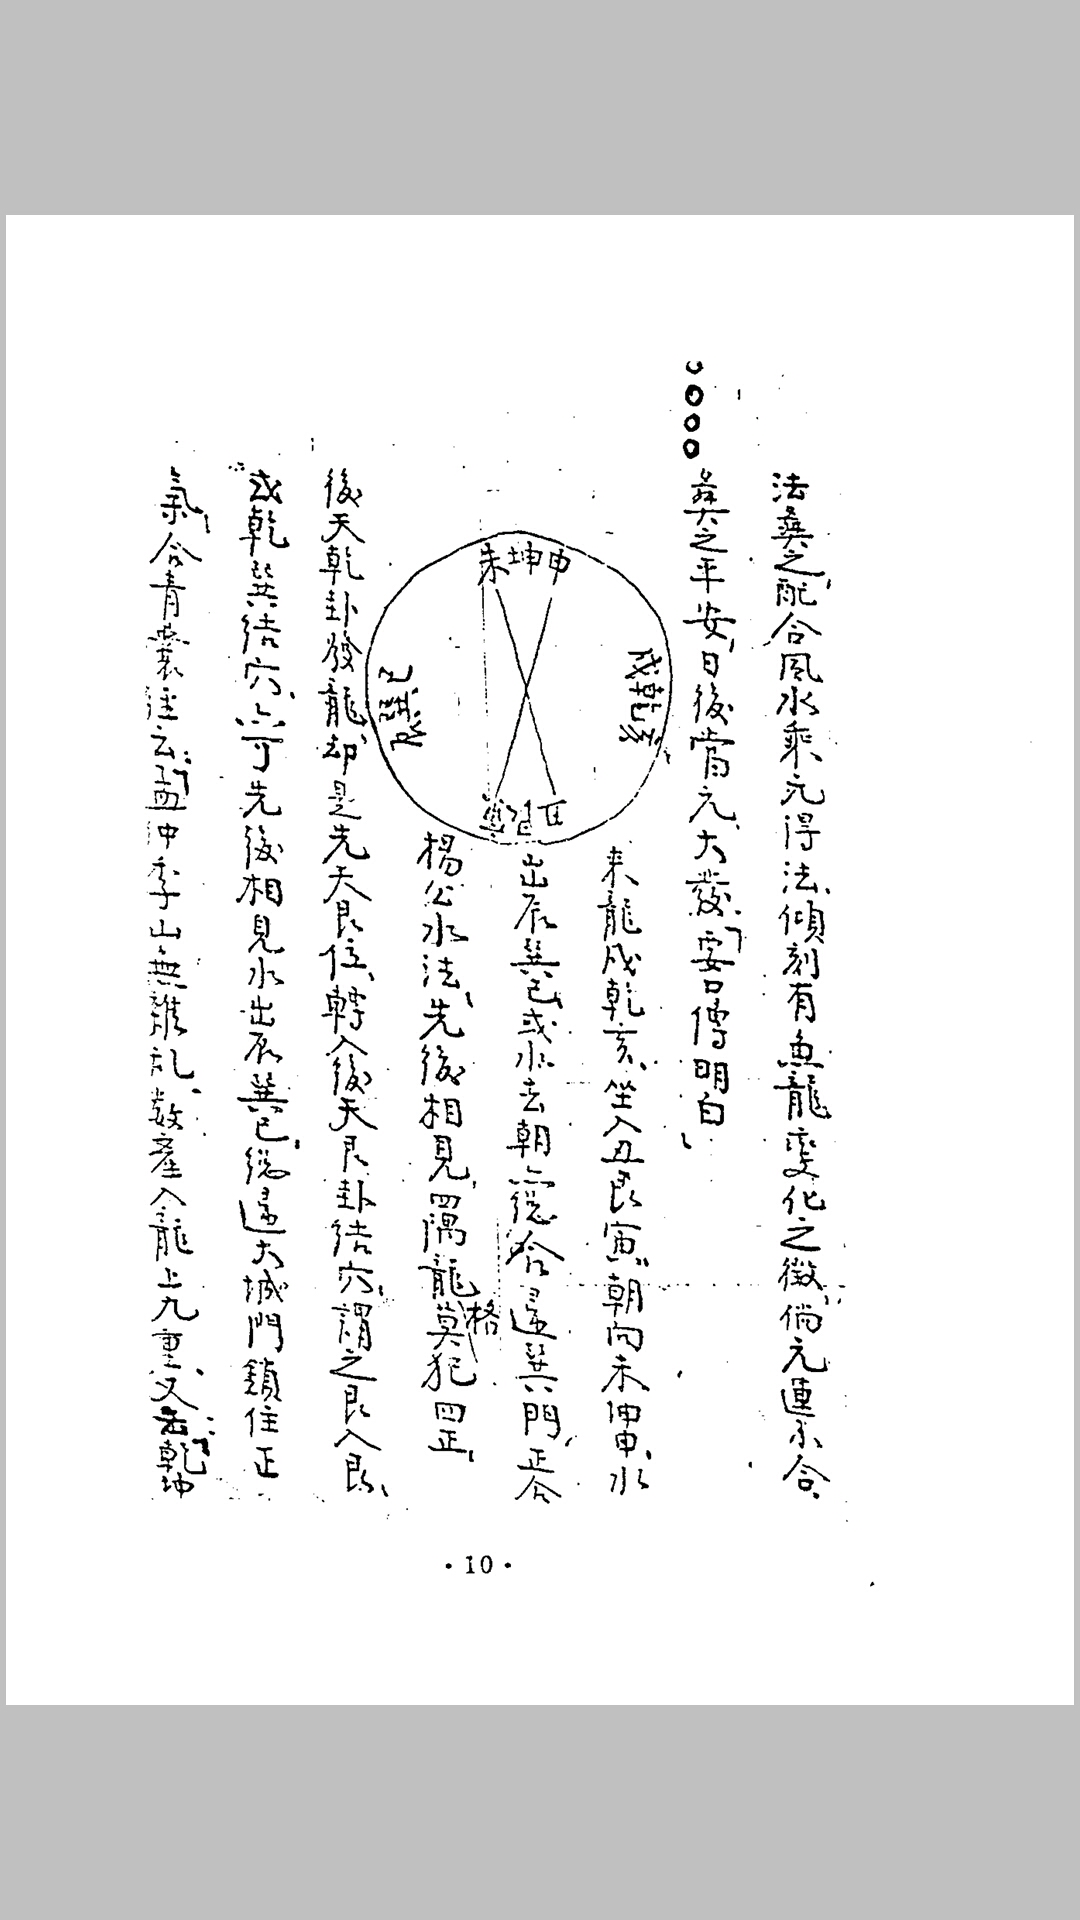 法葬之配合風水乘元得法傾刻有魚龍變化之徵倘元運不合
葬之平安日後當元大發要口傳明白
未坤申
戌乾亥
來龍戌乾亥坐入丑艮寅朝向未坤申水
出辰巽巳或水去朝亦總合還巽門正合
楊公水法先後相見四隅龍格莫犯四正
後天乾卦發龍却是先天艮位轉入後天艮卦結穴謂之艮入艮
或乾巽結穴亦可先後相見水出辰巽巳總還大城門鎖住正
氣合青囊經云孟仲季山無雜乱数產入龍上九重又云乾坤
·10·